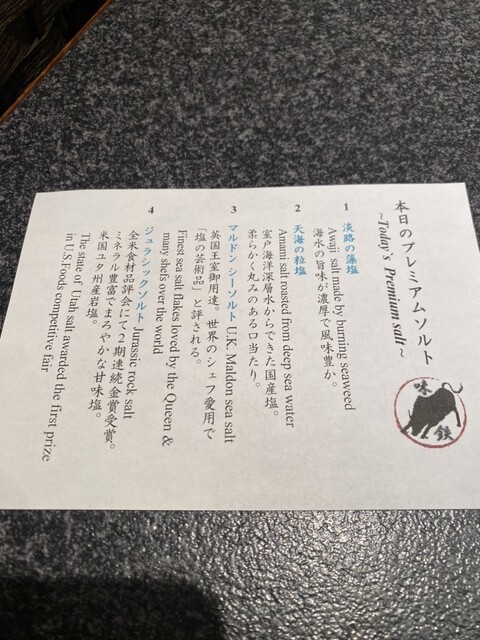 本日のプレミアムソルト
~Today's Premium salt~
味
鉄
1 淡路の藻塩
Awaji salt made by burning seaweed
海水の旨味が濃厚で風味豊か。
2 天海の粒塩
Amami salt roasted from deep sea water
室戸海洋深層水からできた国産塩。
柔らかく丸みのある口当たり。
3 マルドン シーソルト U.K. Maldon sea salt
英国王室御用達。世界のシェフ愛用で
「塩の芸術品」と評される。
Finest sea salt flakes loved by the Queen &
many shefs over the world
4 ジュラシックソルト Jurassic rock salt
全米食材品評会にて2期連続金賞受賞。
ミネラル豊富でまろやかな甘味塩。
米国ユタ州産岩塩。
The state of Utah salt awarded the first prize
in U.S.Foods competitive fair